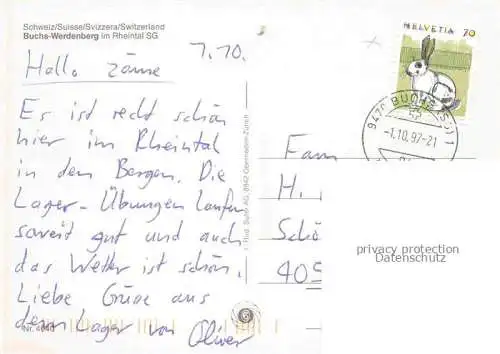 Schweiz/Suisse/Svizzera/Switzerland
Buchs-Werdenberg im Rheintal SG
1.10.
Hallo zäme
Es ist recht schön
hier im Rheintal
in den Bergen. Die
Lager-Übungen laufen
soweit gut und auch
das Wetter ist schön.
Liebe Grüsse aus
dem Lager von Oliver
HELVETIA 70
9470 BUCHS (SG) 1
-1.10.97-21
Fam
H.
Schö
405
privacy protection
Datenschutz